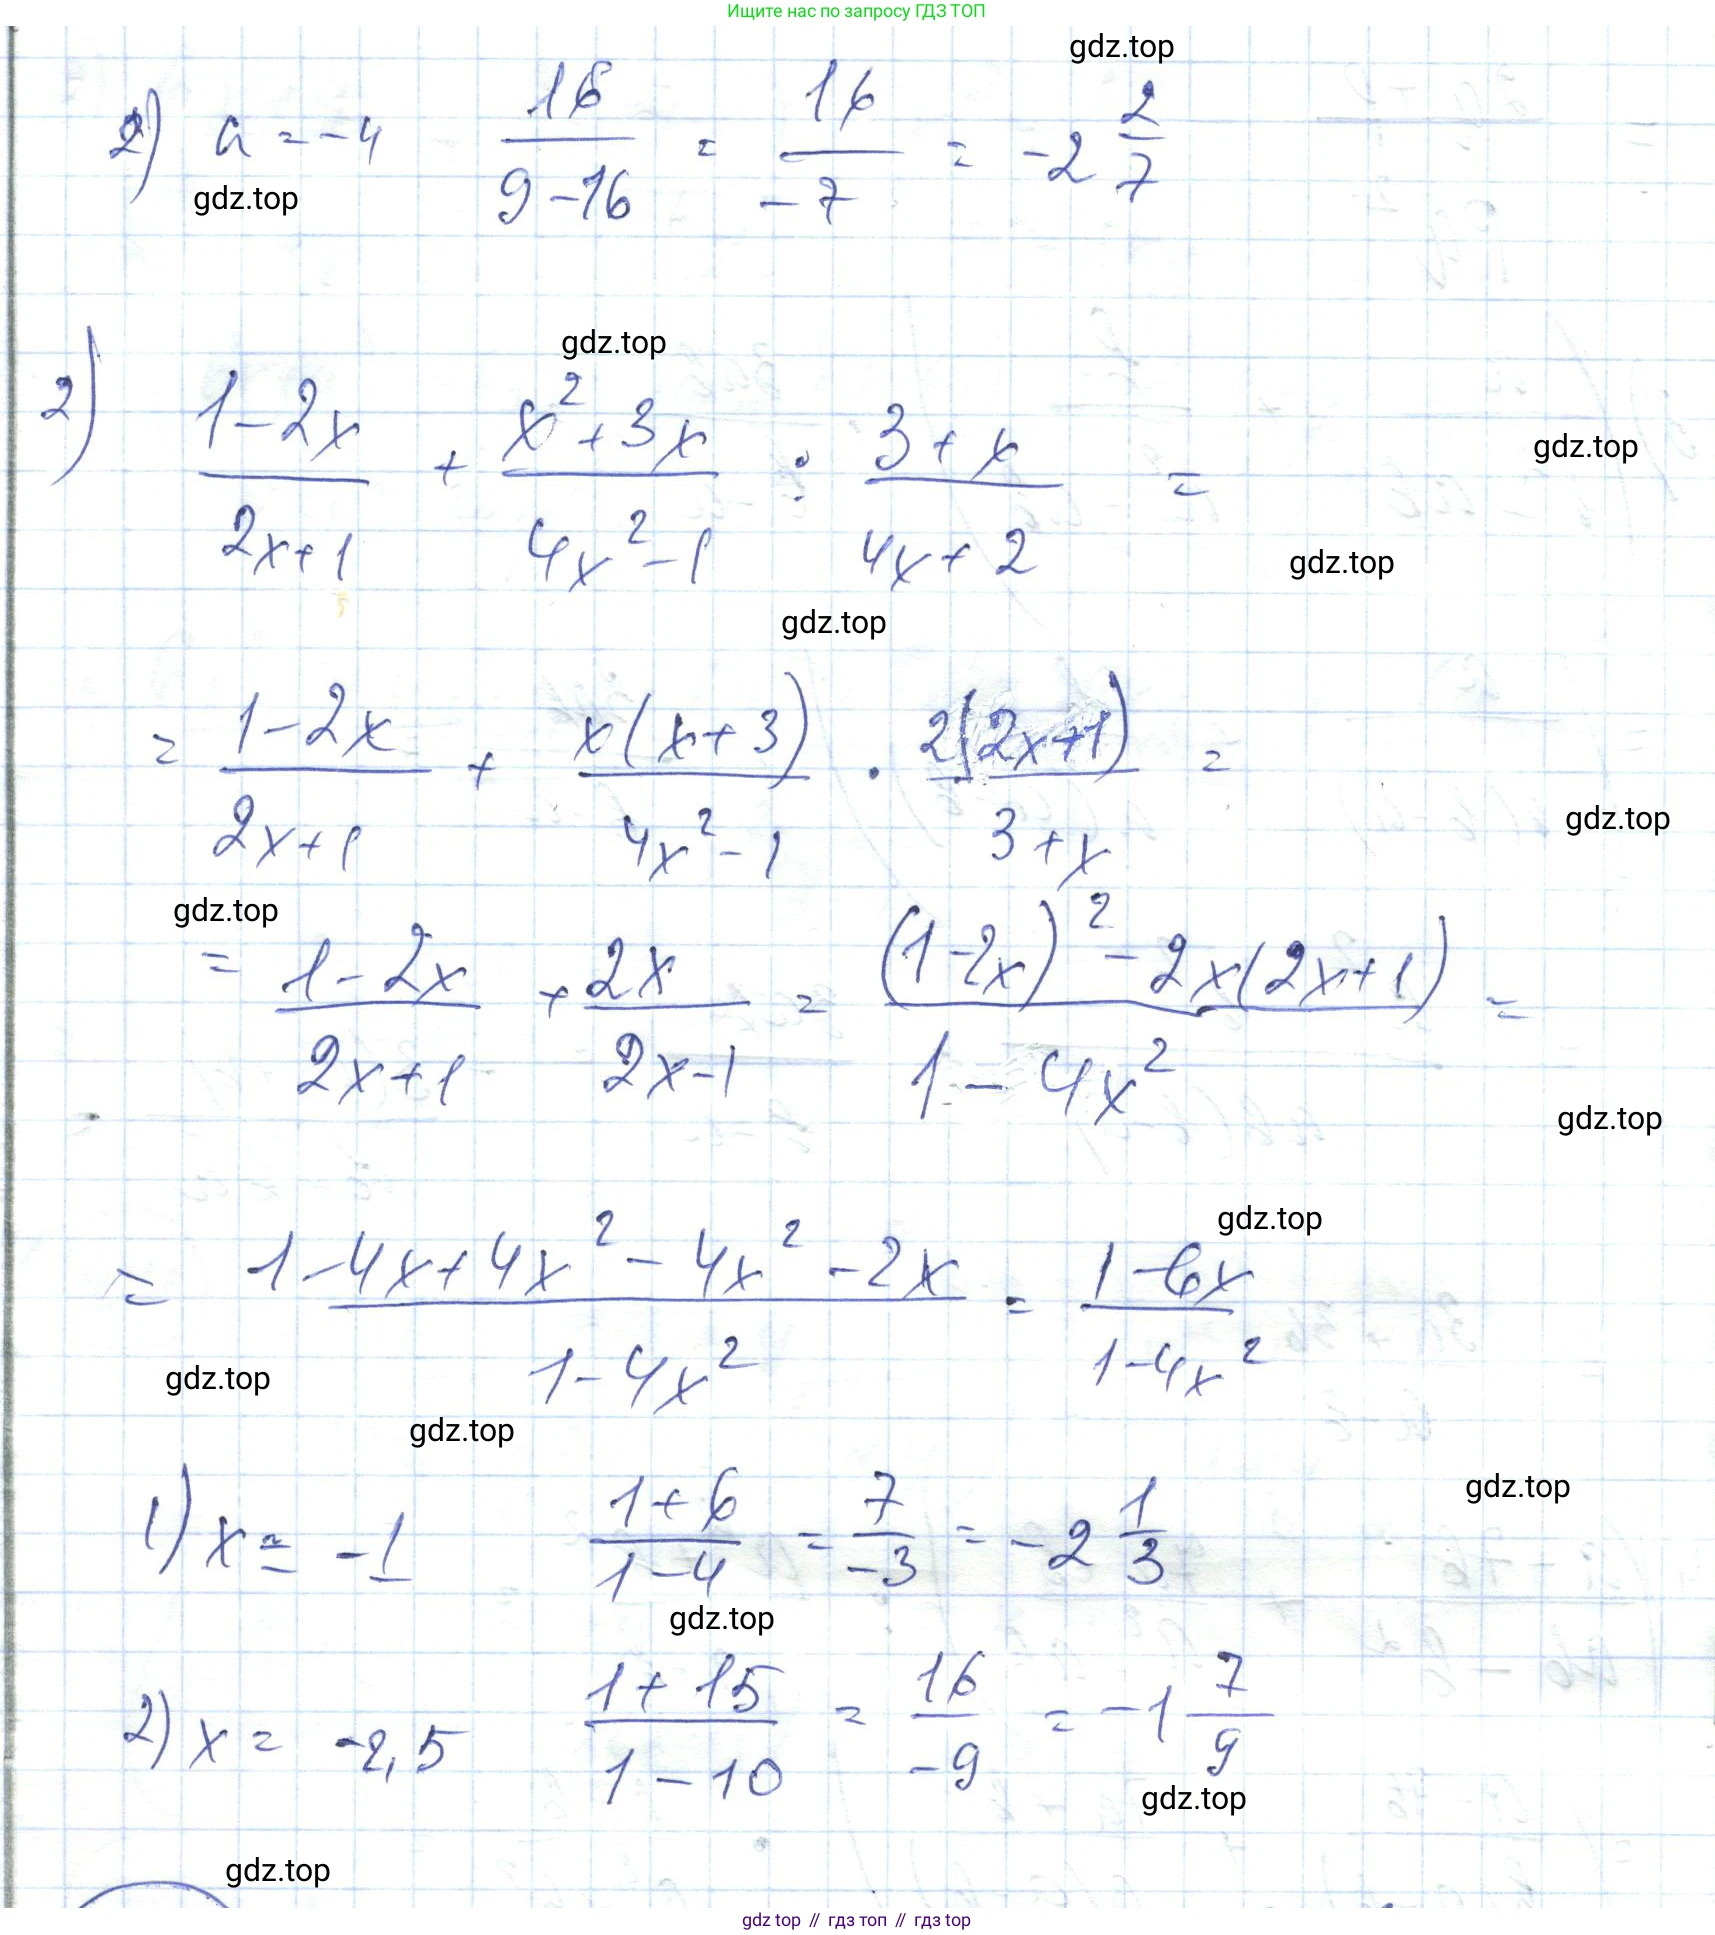 Ищите нас по запросу ГДЗ ТОП
gdz.top
2) a = -4   16/(9-16) = 16/-7 = -2 2/7
gdz.top
gdz.top
2) (1-2x)/(2x+1) + (x²+3x)/(4x²-1) : (3+x)/(4x+2) =
gdz.top
gdz.top
gdz.top
= (1-2x)/(2x+1) + x(x+3)/(4x²-1) · 2(2x+1)/(3+x) =
gdz.top
gdz.top
= (1-2x)/(2x+1) + 2x/(2x-1) = ((1-2x)² - 2x(2x+1))/(1-4x²) =
gdz.top
gdz.top
= (1-4x+4x²-4x²-2x)/(1-4x²) = (1-6x)/(1-4x²)
gdz.top
gdz.top
gdz.top
1) x = -1   (1+6)/(1-4) = 7/-3 = -2 1/3
gdz.top
2) x = -2,5   (1+15)/(1-10) = 16/-9 = -1 7/9
gdz.top
gdz.top
gdz top // гдз топ // gdz top